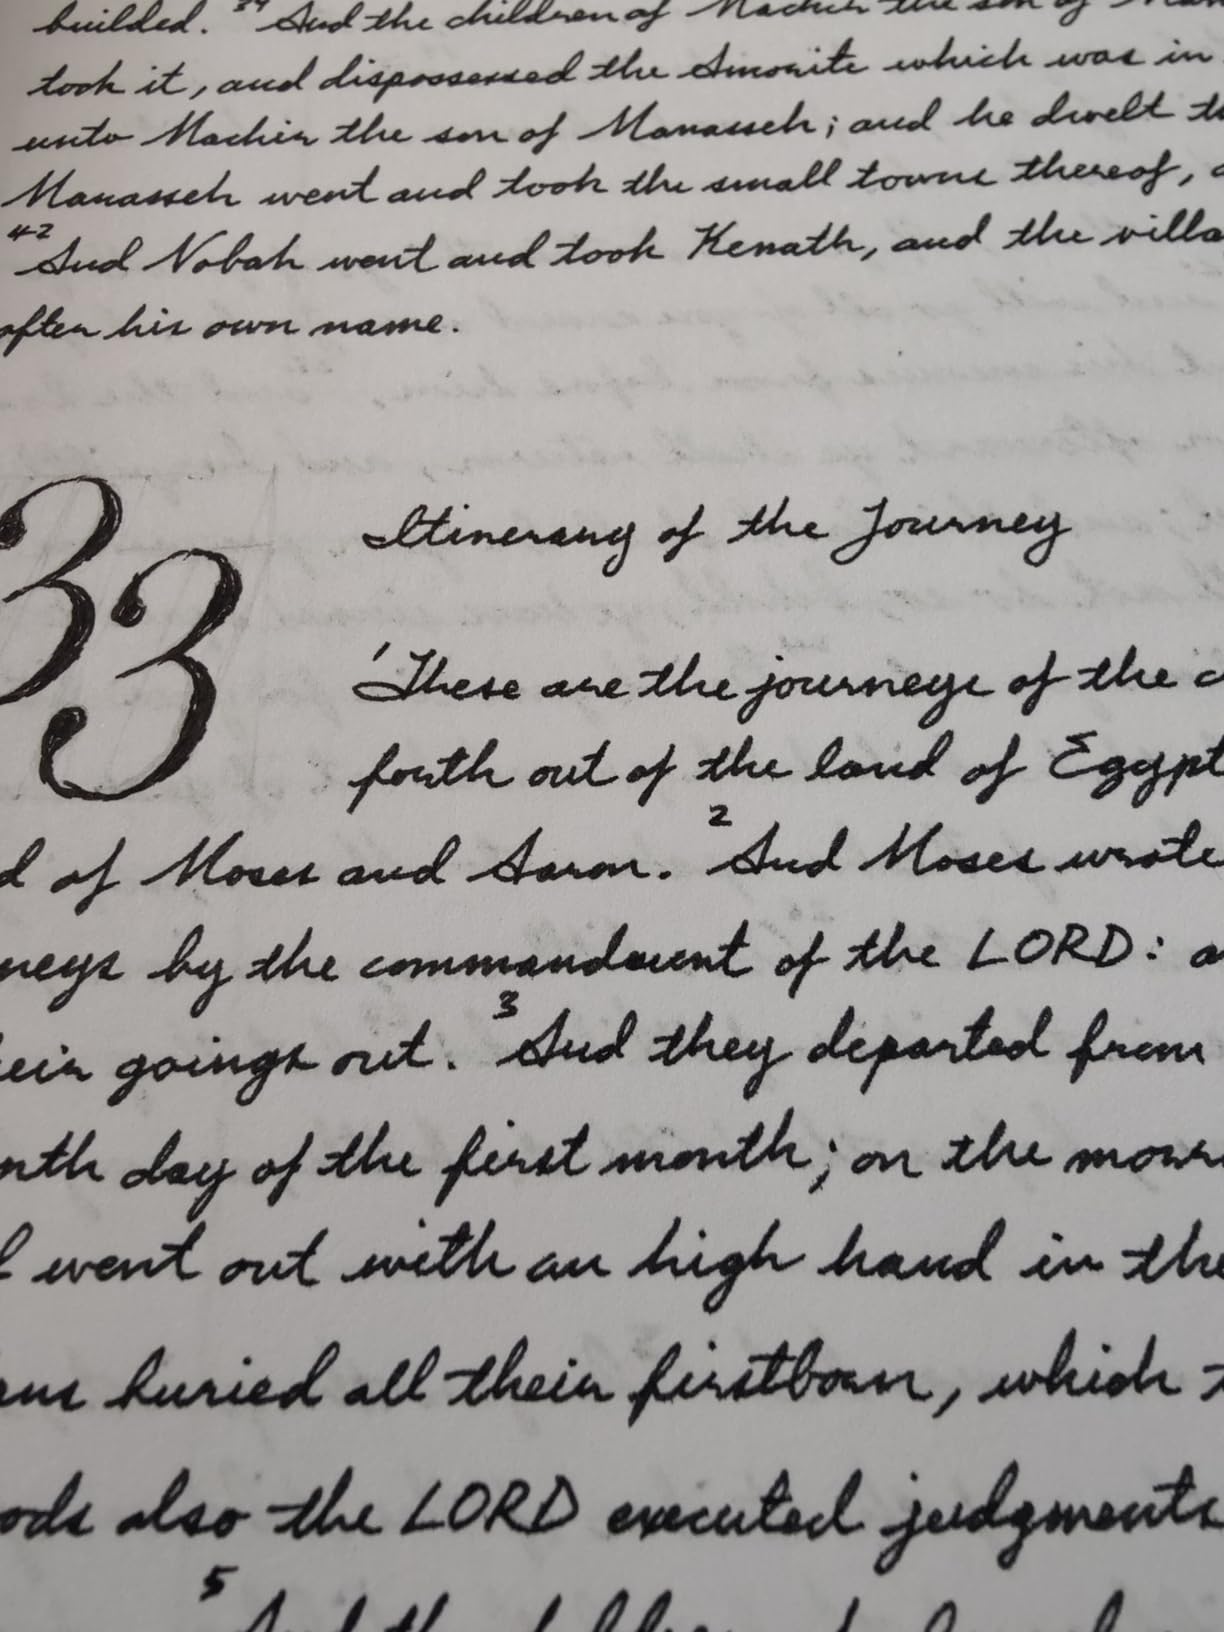 builded. 39 And the children of Machir the son of
took it, and dispossessed the Amorite which was in
unto Machir the son of Manasseh; and he dwelt
Manasseh went and took the small towns thereof,
42 And Nobah went and took Kenath, and the villa
after his own name.
33
Itinerary of the Journey
1 These are the journeys of the c
forth out of the land of Egypt
d of Moses and Aaron. 2 And Moses wrote
neys by the commandment of the LORD: a
eir goings out. 3 And they departed from
nth day of the first month; on the morr
l went out with an high hand in the
ans buried all their firstborn, which
ods also the LORD executed judgments
5